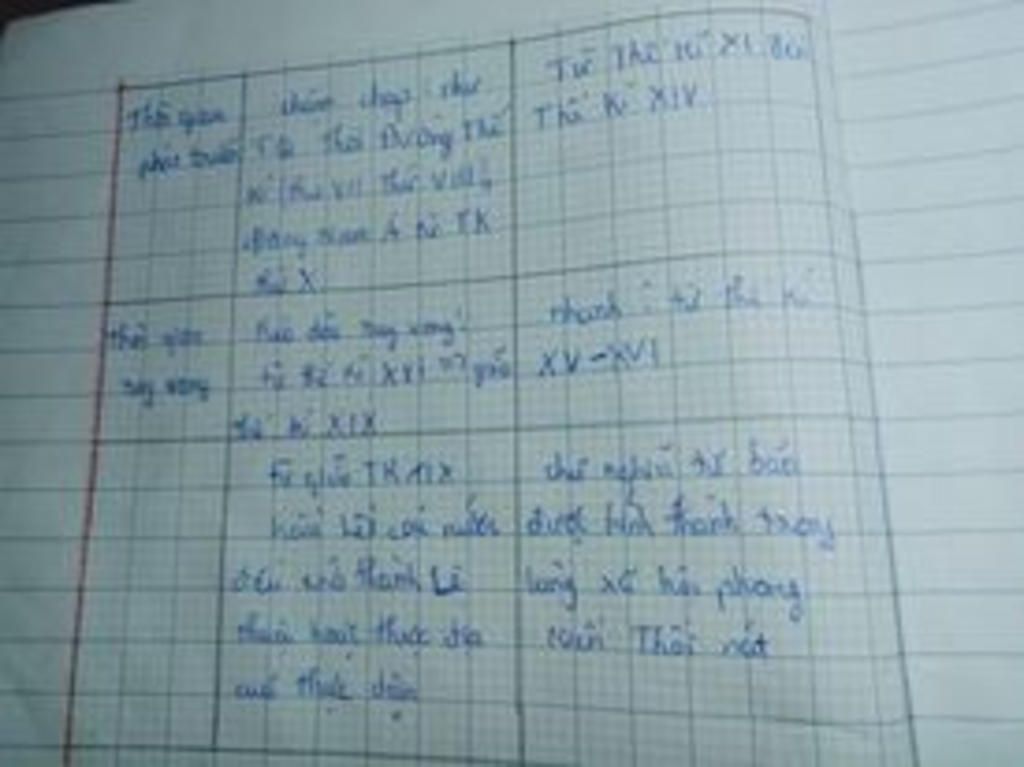 Thời gian
phát triển
chậm chạp như
Từ Thời Đường Thế
kỉ (thứ VII thứ VIII),
Đông Nam Á TK
thứ X
Từ Thế kỉ XI đến
Thế kỉ XIV
thời gian
suy vong
kéo dài suy vong:
từ thế kỉ XVI giữa
thế kỉ XIX
nhanh: từ thế kỉ
XV-XVI
từ giữa TK XIX
hầu hết các nước
đều thành Lệ
thuộc hoặc thực địa
thực dân
chủ nghĩa tư bản
được hình thành trong
lòng xã hội phong
kiến Thời